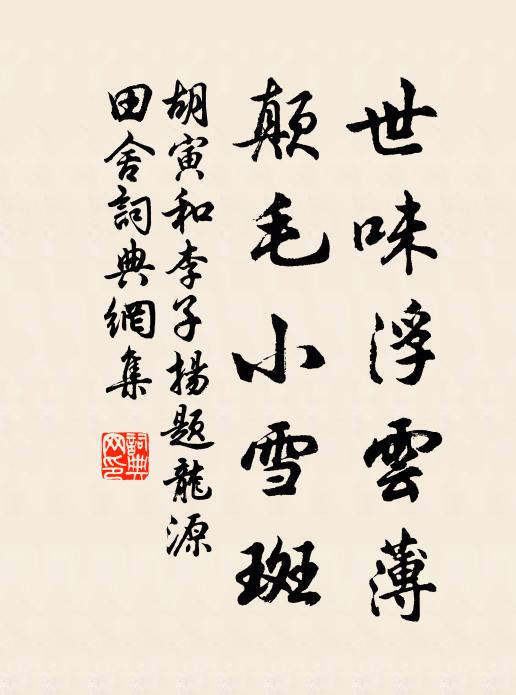 世味浮雲薄
顛毛小雪斑
胡寅和李子揚题龍源
田舍詞典網集
詞典网印